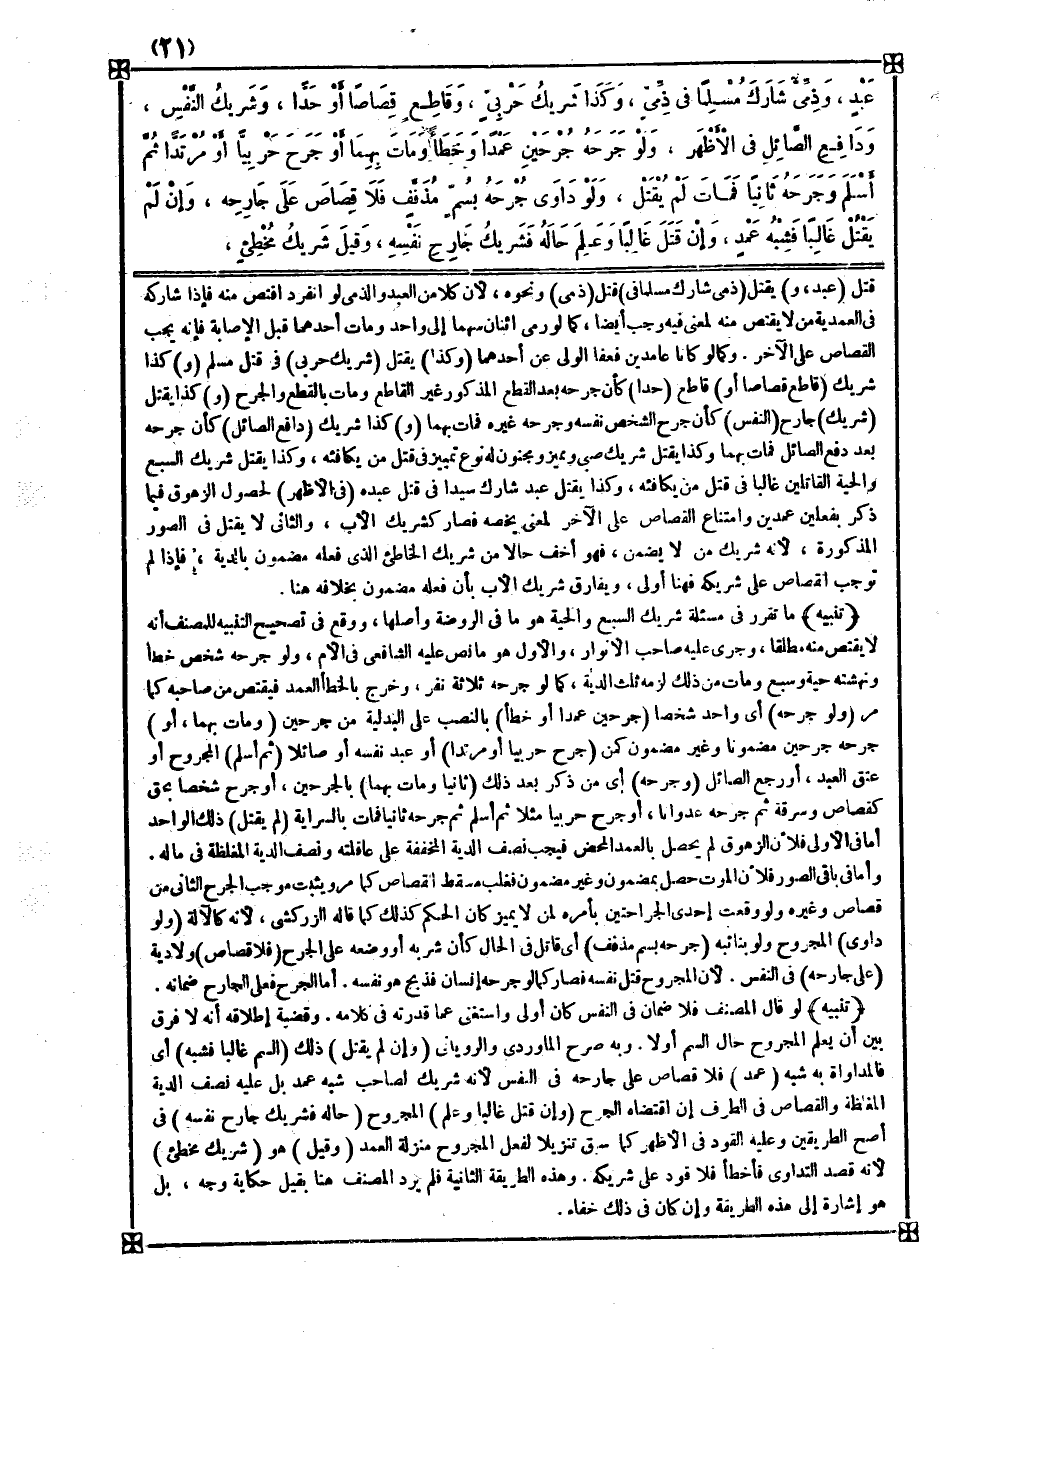 (٢١)
عَبْدٍ ، وَذِمِّىٌّ شَارَكَ مُسْلِمًا فِى ذِمِّىٍّ ، وَكَذَا شَرِيكُ حَرْبِىٍّ ، وَقَاطِعٍ قِصَاصًا أَوْ حَدًّا ، وَشَرِيكُ النَّفْسِ ،
وَدَافِعِ الصَّائِلِ فِى الْأَظْهَرِ ، وَلَوْ جَرَحَهُ جُرْحَيْنِ عَمْدًا وَخَطَأً وَمَاتَ بِهِمَا أَوْ جَرَحَ حَرْبِيًّا أَوْ مُرْتَدًّا ثُمَّ
أَسْلَمَ وَجَرَحَهُ ثَانِيًا فَمَاتَ لَمْ يُقْتَلْ ، وَلَوْ دَاوَى جُرْحَهُ بِسُمٍّ مُذَفِّفٍ فَلَا قِصَاصَ عَلَى جَارِحِهِ ، وَإِنْ لَمْ
يَقْتُلْ غَالِبًا فَشِبْهُ عَمْدٍ ، وَإِنْ قَتَلَ غَالِبًا وَعَلِمَ حَالَهُ فَشَرِيكُ جَارِحِ نَفْسِهِ ، وَقِيلَ شَرِيكُ مُخْطِئٍ ،
قتل (عبد ، و) يقتل (ذمى شارك مسلما فى) قتل (ذمى) ونحوه ، لأن كلا من العبد والذمى لو انفرد اقتص منه فإذا شاركه
فى العمدية من لا يقتص منه لمعنى فيه وجب أيضا ، كما لو رمى اثنان سهما إلى واحد ومات أحدهما قبل الإصابة فإنه يجب
القصاص على الآخر . وكما لو كانا عامدين فعفا الولى عن أحدهما (وكذا) يقتل (شريك حربى) فى قتل مسلم (و) كذا
شريك (قاطع قصاصا أو) قاطع (حدا) كأن جرحه بعد القطع المذكور غير القاطع ومات بالقطع والجرح (و) كذا يقتل
(شريك) جارح (النفس) كأن جرح الشخص نفسه وجرحه غيره فمات بهما (و) كذا شريك (دافع الصائل) كأن جرحه
بعد دفع الصائل فمات بهما وكذا يقتل شريك صبى مميز ومجنون له نوع تمييز فى قتل من يكافئه ، وكذا يقتل شريك السبع
والحية القاتلين غالبا فى قتل من يكافئه ، وكذا يقتل عبد شارك سيدا فى قتل عبده (فى الأظهر) لحصول الزهوق فيما
ذكر بفعلين عمدين وامتناع القصاص على الآخر لمعنى يخصه فصار كشريك الأب ، والثانى لا يقتل فى الصور
المذكورة ، لأنه شريك من لا يضمن ، فهو أخف حالا من شريك الخاطئ الذى فعله مضمون بالدية ، فإذا لم
توجب القصاص على شريكه فهنا أولى ، ويفارق شريك الأب بأن فعله مضمون بخلافه هنا .
﴿تنبيه﴾ ما تقرر فى مسئلة شريك السبع والحية هو ما فى الروضة وأصلها ، ووقع فى تصحيح التنبيه للمصنف أنه
لا يقتص منه مطلقا ، وجرى عليه صاحب الأنوار ، والأول هو ما نص عليه الشافعى فى الأم ، ولو جرحه شخص خطأ
ونهشته حية وسبع ومات من ذلك لزمه ثلث الدية ، كما لو جرحه ثلاثة نفر ، وخرج بالخطأ العمد فيقتص من صاحبه كما
مر (ولو جرحه) أى واحد شخصا (جرحين عمدا أو خطأ) بالنصب على البدلية من جرحين (ومات بهما ، أو)
جرحه جرحين مضمونا وغير مضمون كمن (جرح حربيا أو مرتدا) أو عبد نفسه أو صائلا (ثم أسلم) المجروح أو
عتق العبد ، أو رجع الصائل (وجرحه) أى من ذكر بعد ذلك (ثانيا ومات بهما) بالجرحين ، أو جرح شخصا بحق
كقصاص وسرقة ثم جرحه عدوانا ، أو جرح حربيا مثلا ثم أسلم ثم جرحه ثانيا فمات بالسراية (لم يقتل) ذلك الواحد
أما فى الأولى فلأن الزهوق لم يحصل بالعمد المحض فيجب نصف الدية المخففة على عاقلته ونصف الدية المغلظة فى ماله .
وأما فى باقى الصور فلأن الموت حصل بمضمون وغير مضمون فغلب مسقط القصاص كما مر ويثبت موجب الجرح الثانى من
قصاص وغيره ولو وقعت إحدى الجراحتين بأمره لمن لا يميز كان الحكم كذلك كما قاله الزركشى ، لأنه كالآلة (ولو
داوى) المجروح ولو بنائبه (جرحه بسم مذفف) أى قاتل فى الحال كأن شربه أو وضعه على الجرح (فلا قصاص) ولا دية
(على جارحه) فى النفس . لأن المجروح قتل نفسه فصار كما لو جرحه إنسان فذبح هو نفسه . أما الجرح فعلى الجارح ضمانه .
﴿تنبيه﴾ لو قال المصنف فلا ضمان فى النفس كان أولى واستغنى عما قدرته فى كلامه . وقضية إطلاقه أنه لا فرق
بين أن يعلم المجروح حال السم أولا . وبه صرح الماوردى والرويانى (وإن لم يقتل) ذلك (السم غالبا فشبه) أى
فالمداواة به شبه (عمد) فلا قصاص على جارحه فى النفس لأنه شريك لصاحب شبه عمد بل عليه نصف الدية
المغلظة والقصاص فى الطرف إن اقتضاه الجرح (وإن قتل غالبا وعلم) المجروح (حاله فشريك جارح نفسه) فى
أصح الطريقين وعليه القود فى الأظهر كما سبق تنزيلا لفعل المجروح منزلة العمد (وقيل) هو (شريك مخطئ)
لأنه قصد التداوى فأخطأ فلا قود على شريكه . وهذه الطريقة الثانية فلم يرد المصنف هنا بقيل حكاية وجه ، بل
هو إشارة إلى هذه الطريقة وإن كان فى ذلك خفاء .